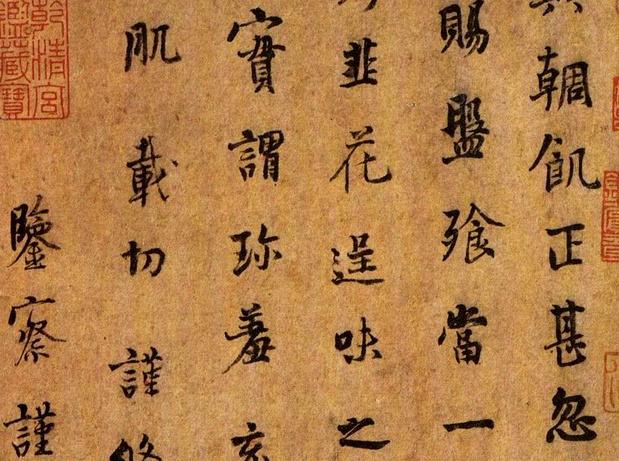 輖飢正甚忽
賜盤飧當一
韭花逞味之
實謂珎羞充
肌載切謹修
鑒察謹
乾清宮鑑藏寶